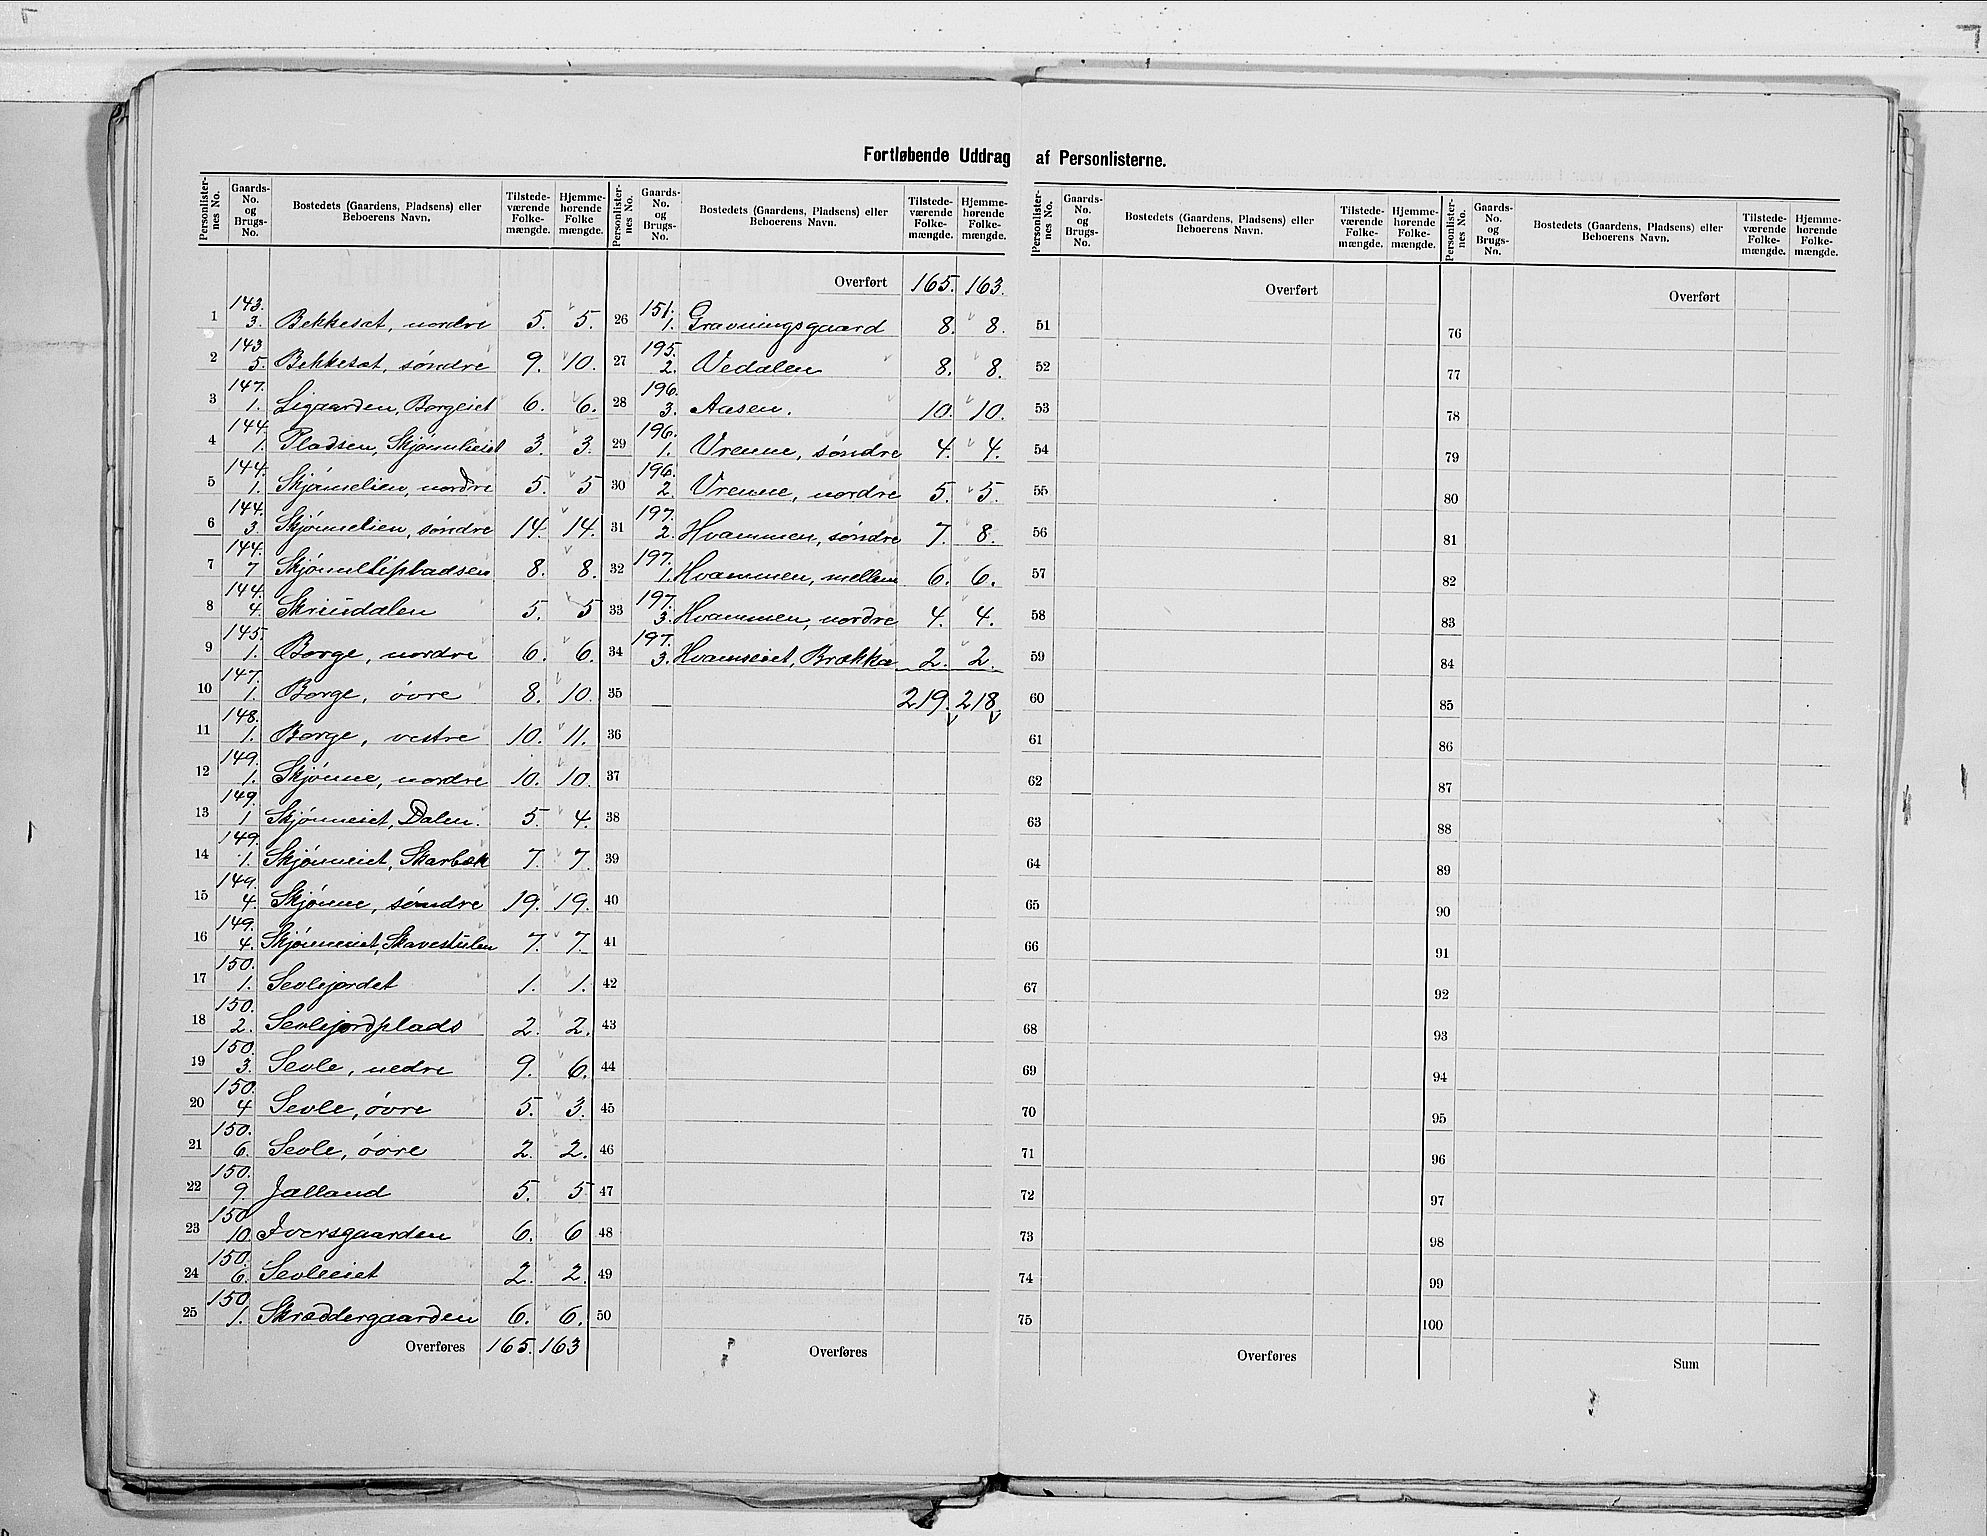 Fortløbende Uddrag af Personlisterne.
Personlister-nes No. | Gaards-No. og Brugs-No. | Bostedets (Gaardens, Pladsens) eller Beboerens Navn. | Tilstede-værende Folke-mængde. | Hjemme-hørende Folke mængde.
1 | 143. 3. | Bekkesæt, nordre | 5. | 5.
2 | 143. 5. | Bekkesæt, søndre | 9. | 10.
3 | 147. 1. | Ligaarden, Borgeiet | 6. | 6.
4 | 144. 1. | Pladsen, Skjønnlieiet | 3. | 3.
5 | 144. 1. | Skjønnelien, nordre | 5. | 5
6 | 144. 3. | Skjønnelien, søndre | 14. | 14.
7 | 144. 7 | Skjønneliplradsen | 8. | 8.
8 | 144. 4. | Skrindalen | 5. | 5
9 | 145. 1. | Borge, nordre | 6. | 6.
10 | 147. 1. | Borge, øvre | 8. | 10.
11 | 148. 1. | Borge, vestre | 10. | 11.
12 | 149. 1. | Skjønne, nordre | 10. | 10.
13 | 149. 1 | Skjønneiet, Dalen. | 5. | 4.
14 | 149. 1. | Skjønneiet, Skarbæk | 7. | 7.
15 | 149. 4. | Skjønne, søndre | 19. | 19.
16 | 149. 4. | Skjønneiet, Skavestulen | 7. | 7.
17 | 150. 1. | Sevlejordet | 1. | 1.
18 | 150. 2. | Sevlejordplads | 2. | 2.
19 | 150. 3. | Sevle, nedre | 9. | 6.
20 | 150. 4 | Sevle, øvre | 5. | 3.
21 | 150. 6. | Sevle, øvre | 2. | 2.
22 | 150. 9. | Jælland | 5. | 5
23 | 150 10. | Iversgaarden | 6. | 6
24 | 150. 6. | Sevleeiet | 2. | 2.
25 | 150 1. | Skræddergaarden | 6. | 6.
Overføres | 165. | 163
Personlister-nes No. | Gaards-No. og Brugs-No. | Bostedets (Gaardens, Pladsens) eller Beboerens Navn. | Tilstede-værende Folke-mængde. | Hjemme-hørende Folke-mængde.
Overført | 165. | 163.
26 | 151. 1. | Gravningsgaard | 8. | 8.
27 | 195. 2. | Vedalen | 8. | 8.
28 | 196. 3. | Aasen. | 10. | 10.
29 | 196. 1. | Vrenne, søndre | 4. | 4.
30 | 196. 2. | Vrenne, nordre | 5. | 5.
31 | 197. 2. | Hvammen, søndre | 7. | 8.
32 | 197. 1. | Hvammen, mellem | 6. | 6.
33 | 197. 3. | Hvammen, nordre | 4. | 4.
34 | 197. 3. | Hvamseiet, Brækka | 2. | 2.
35 | 219. | 218.
36
37
38
39
40
41
42
43
44
45
46
47
48
49
50
Overføres
Personlister-nes No. | Gaards-No. og Brugs-No. | Bostedets (Gaardens, Pladsens) eller Beboerens Navn. | Tilstede-værende Folke-mængde. | Hjemme-hørende Folke-mængde.
Overført
51
52
53
54
55
56
57
58
59
60
61
62
63
64
65
66
67
68
69
70
71
72
73
74
75
Overføres
Personlister-nes No. | Gaards-No. og Brugs-No. | Bostedets (Gaardens, Pladsens) eller Beboerens Navn. | Tilstede-værende Folke-mængde. | Hjemme-hørende Folke-mængde.
Overført
76
77
78
79
80
81
82
83
84
85
86
87
88
89
90
91
92
93
94
95
96
97
98
99
100
Sum